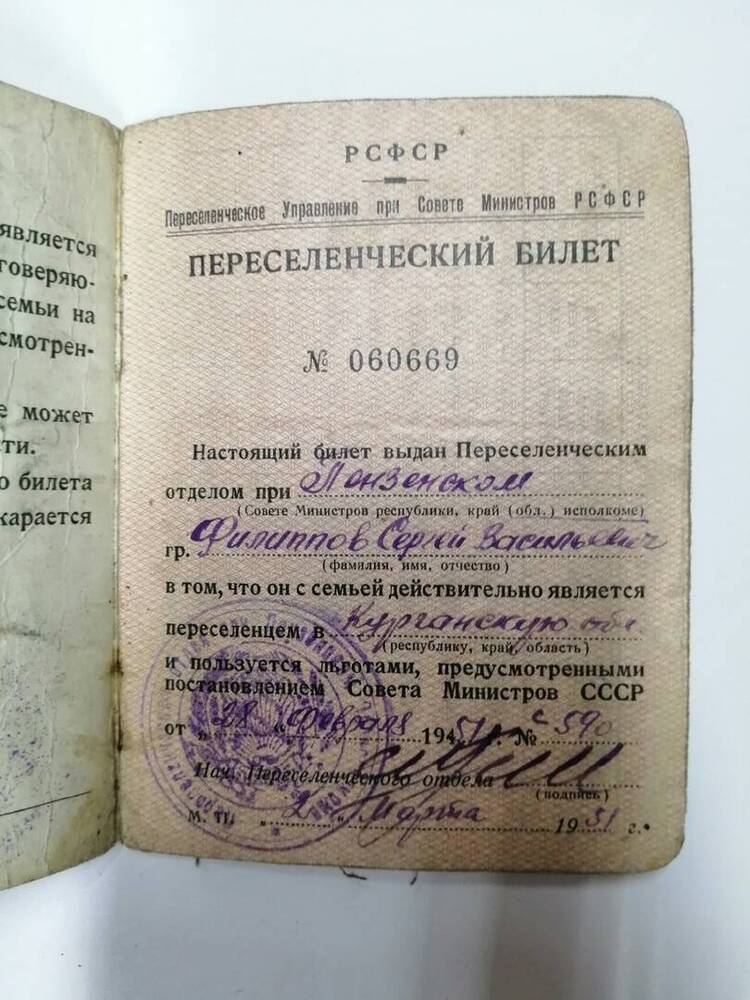 является
говеряю-
семьи на
смотрен-
е может
ти.
о билета
карается
РСФСР
Переселенческое Управление при Совете Министров РСФСР
ПЕРЕСЕЛЕНЧЕСКИЙ БИЛЕТ
№ 060669
Настоящий билет выдан Переселенческим
отделом при Пензенском
(Совете Министров республики, край (обл.) исполкоме)
гр. Филиппов Сергей Васильевич
(фамилия, имя, отчество)
в том, что он с семьей действительно является
переселенцем в Курганскую обл
(республику, край, область)
и пользуется льготами, предусмотренными
постановлением Совета Министров СССР
от „28“ февраля 1951 г. № с 590
Нач. Переселенческого отдела
(подпись)
М. П. „2“ марта 1951 г.